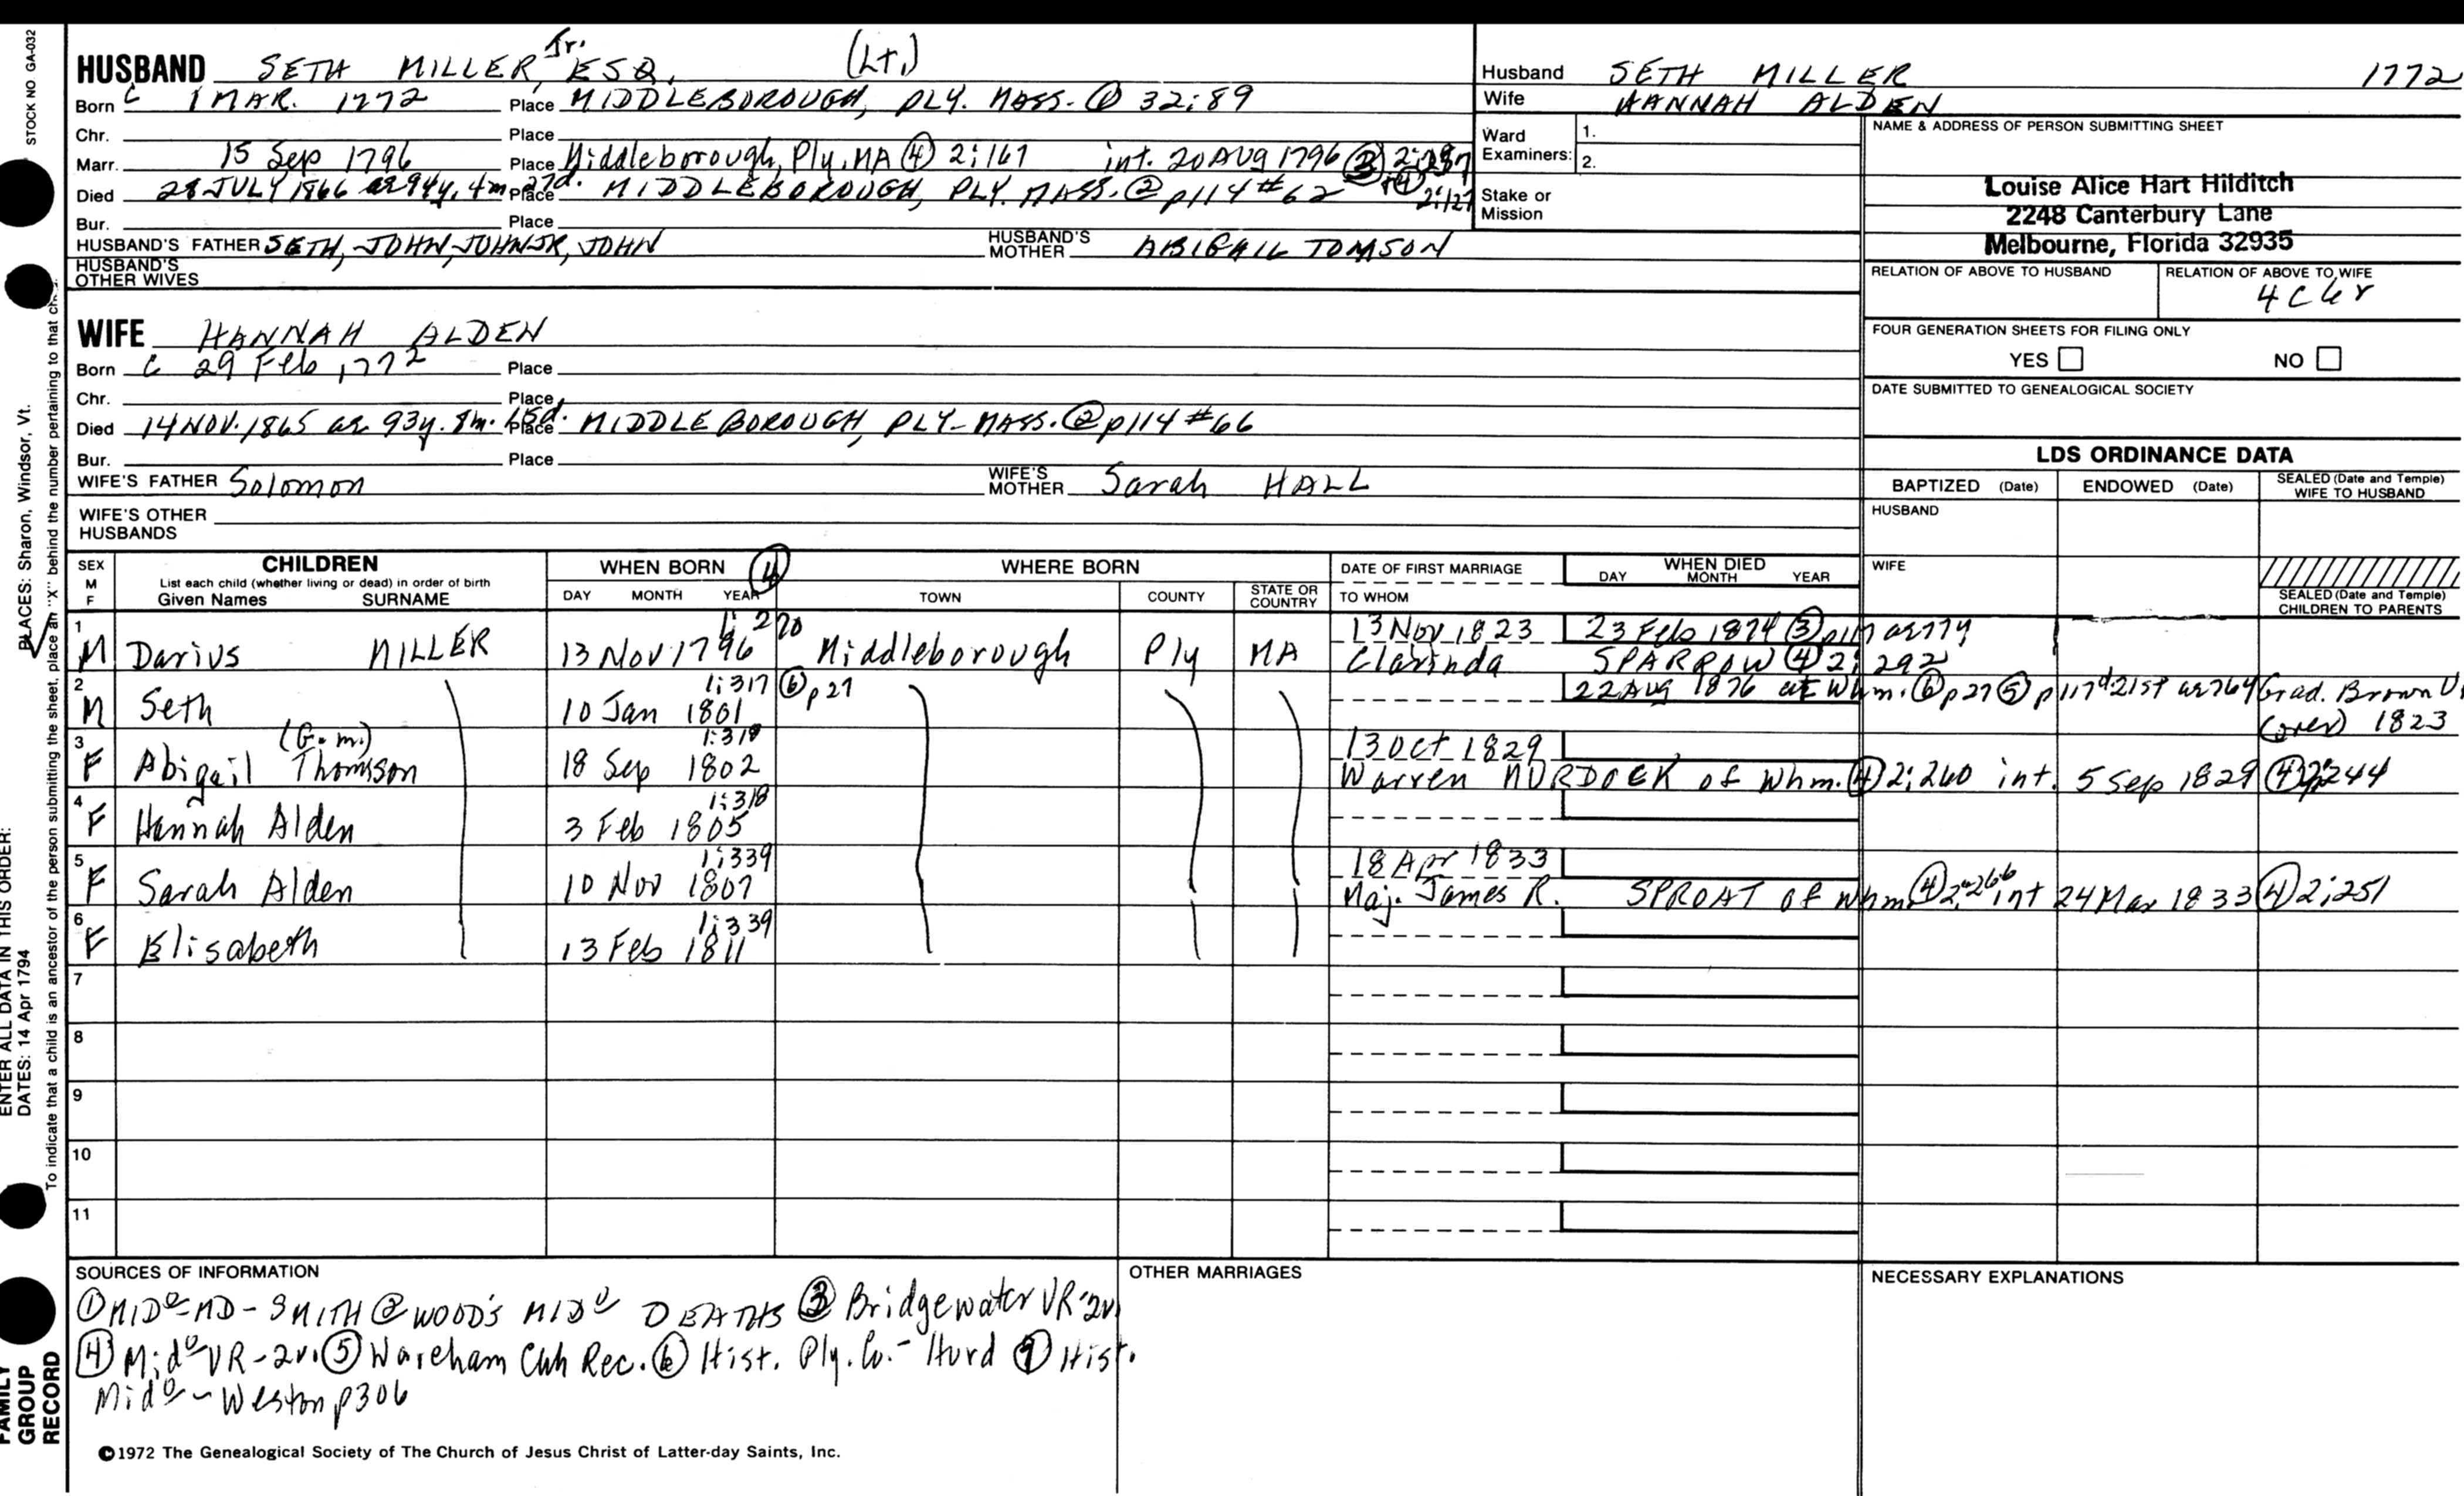 STOCK NO GA-032
HUSBAND SETH MILLER, Jr. ESQ. (Lt.)
Born C 1 MAR. 1772 Place MIDDLEBOROUGH, PLY. MASS. ① 32:89
Chr. Place
Marr. 15 Sep 1796 Place Middleborough, Ply, MA ④ 2:167 int. 20 AUG 1796 ③
Died 28 JULY 1866 ae 94y, 4m 27d. Place MIDDLEBOROUGH, PLY. MASS. ② p114 #62 + ④ 2:127
Bur. Place
HUSBAND'S FATHER SETH, JOHN, JOHN JR, JOHN HUSBAND'S MOTHER ABIGAIL TOMSON
HUSBAND'S OTHER WIVES
WIFE HANNAH ALDEN
Born C 29 Feb 1772 Place
Chr. Place
Died 14 NOV. 1865 ae 93y. 8m. 15d. Place MIDDLEBOROUGH, PLY- MASS. ② p114 #66
Bur. Place
WIFE'S FATHER Solomon WIFE'S MOTHER Sarah HALL
WIFE'S OTHER HUSBANDS
Husband SETH MILLER 1772
Wife HANNAH ALDEN
Ward Examiners: 1.
2.
Stake or Mission
NAME & ADDRESS OF PERSON SUBMITTING SHEET
Louise Alice Hart Hilditch
2248 Canterbury Lane
Melbourne, Florida 32935
RELATION OF ABOVE TO HUSBAND RELATION OF ABOVE TO WIFE
4C6r
FOUR GENERATION SHEETS FOR FILING ONLY
YES NO
DATE SUBMITTED TO GENEALOGICAL SOCIETY
LDS ORDINANCE DATA
BAPTIZED (Date) ENDOWED (Date) SEALED (Date and Temple) WIFE TO HUSBAND
HUSBAND
WIFE
SEALED (Date and Temple) CHILDREN TO PARENTS
SEX M F CHILDREN WHEN BORN ④ WHERE BORN DATE OF FIRST MARRIAGE WHEN DIED
List each child (whether living or dead) in order of birth
Given Names SURNAME DAY MONTH YEAR TOWN COUNTY STATE OR COUNTRY TO WHOM DAY MONTH YEAR
1 1:270 13 Nov 1823 23 Feb 1874 ③ p117 ae 77y
M Darius MILLER 13 Nov 1796 Middleborough Ply MA Clarinda SPARROW ④ 2:292
2 1:317 ⑥ p27 22 Aug 1876 at Whm. ⑥ p27 ⑤ p117 d 21st ae 76y Grad. Brown U.
M Seth 10 Jan 1801 (over) 1823
3 (G. m.) 1:318 13 Oct 1829
F Abigail Thomson 18 Sep 1802 Warren MURDOCK of Whm. ④ 2:260 int. 5 Sep 1829 ④ 2:244
4 1:318
F Hannah Alden 3 Feb 1805
5 1:339 18 Apr 1833
F Sarah Alden 10 Nov 1807 Maj. James R. SPROAT of Whm ④ 2:266 int 24 Mar 1833 ④ 2:251
6 1:339
F Elisabeth 13 Feb 1811
7
8
9
10
11
SOURCES OF INFORMATION
① MIDo-MD- SMITH ② WOOD'S MIDo DEATHS ③ Bridgewater VR-2v
④ Mido VR-2v. ⑤ Wareham Chh Rec. ⑥ Hist. Ply. Co.- Hurd ⑦ Hist.
Mido - Weston p306
OTHER MARRIAGES
NECESSARY EXPLANATIONS
©1972 The Genealogical Society of The Church of Jesus Christ of Latter-day Saints, Inc.
PLACES: Sharon, Windsor, Vt.
ENTER ALL DATA IN THIS ORDER:
DATES: 14 Apr 1794
To indicate that a child is an ancestor of the person submitting the sheet, place an "X" behind the number pertaining to that
FAMILY GROUP RECORD